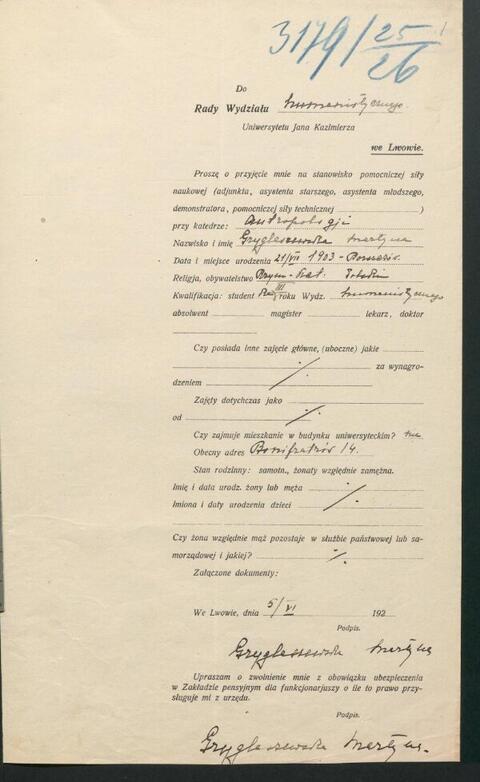 3179/25/26
1
Do
Rady Wydziału humanistycznego.
Uniwersytetu Jana Kazimierza
we Lwowie.
Proszę o przyjęcie mnie na stanowisko pomocniczej siły
naukowej (adjunkta, asystenta starszego, asystenta młodszego,
demonstratora, pomocniczej siły technicznej )
przy katedrze: Antropologji
Nazwisko i imię Gryglaszewska Martyna
Data i miejsce urodzenia 21/VII 1903 -
Religja, obywatelstwo Rzym-Kat. Polskie
Kwalifikacja: student III roku Wydz. humanistycznego
absolwent magister lekarz, doktor
Czy posiada inne zajęcie główne, (uboczne) jakie
za wynagro-
dzeniem
Zajęty dotychczas jako
od
Czy zajmuje mieszkanie w budynku uniwersyteckim? nie
Obecny adres Bonifratrów 14.
Stan rodzinny: samotn., żonaty względnie zamężna.
Imię i data urodz. żony lub męża
Imiona i daty urodzenia dzieci
Czy żona względnie mąż pozostaje w służbie państwowej lub sa-
morządowej i jakiej?
Załączone dokumenty:
We Lwowie, dnia 5/VI 192
Podpis.
Gryglaszewska Martyna
Upraszam o zwolnienie mnie z obowiązku ubezpieczenia
w Zakładzie pensyjnym dla funkcjonarjuszy o ile to prawo przy-
sługuje mi z urzędu.
Podpis.
Gryglaszewska Martyna.